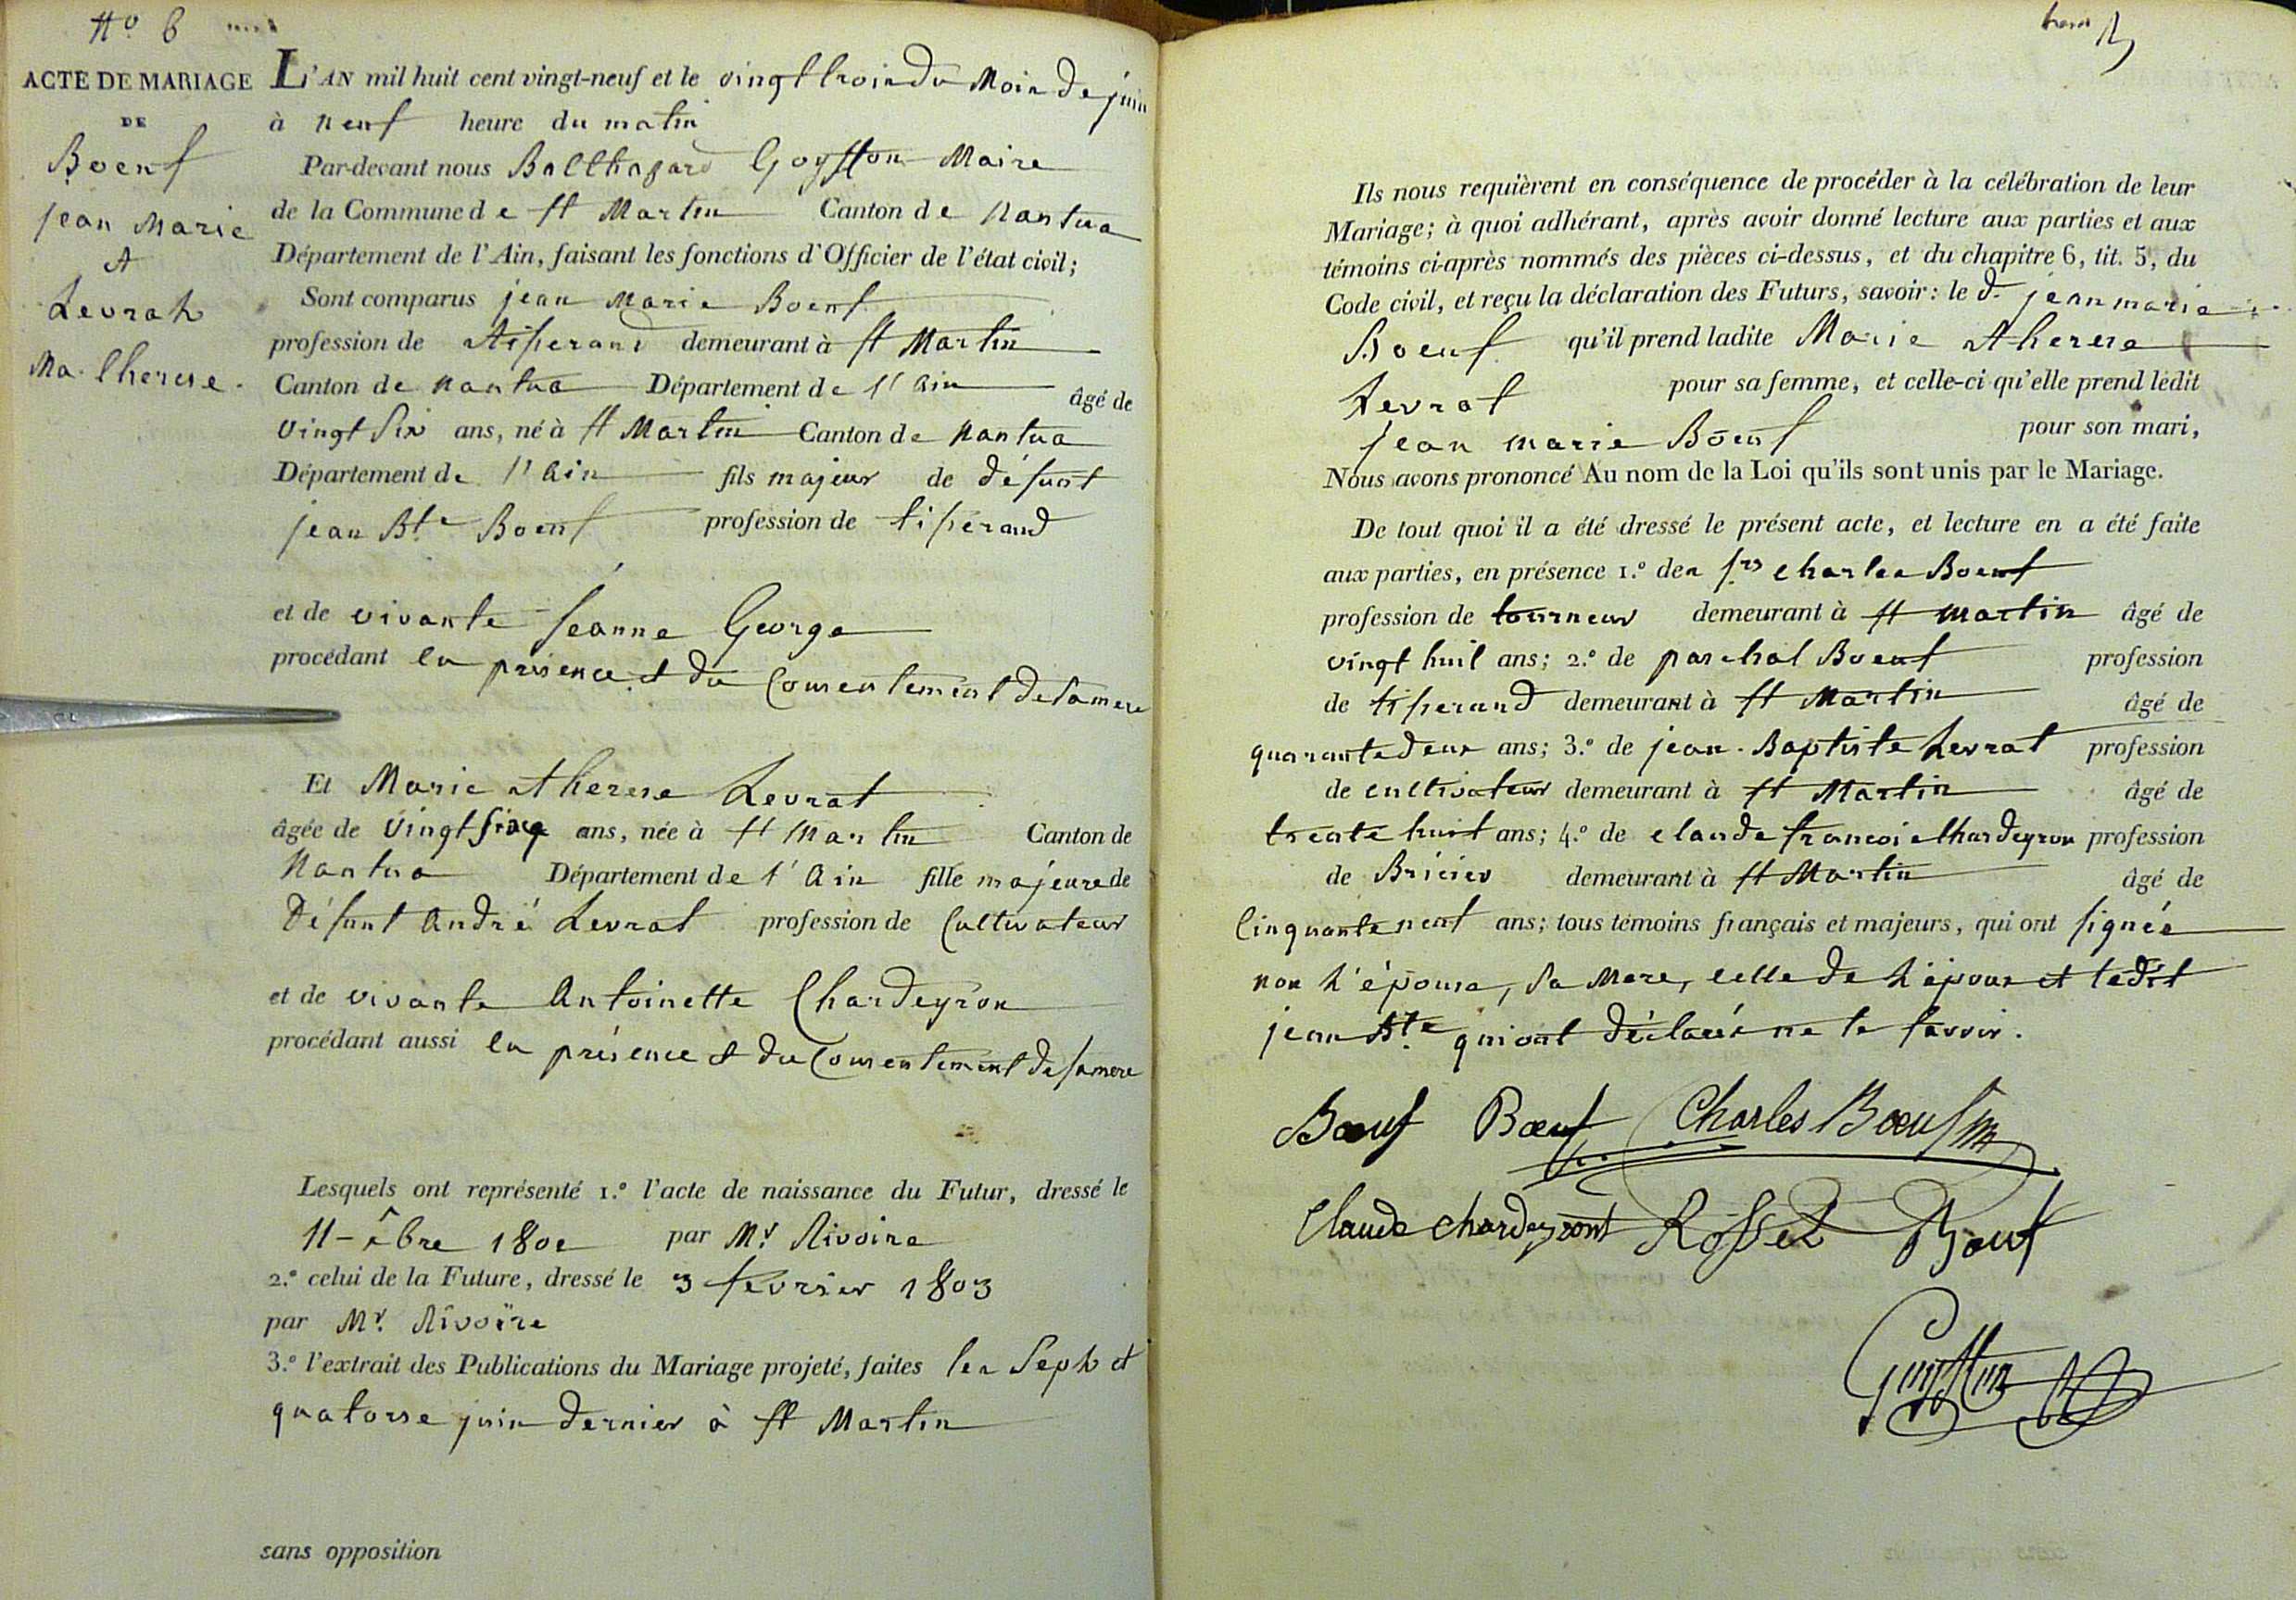 No 6
ACTE DE MARIAGE
DE
Boeuf
jean Marie
et
Levrat
Ma. therese.
L'AN mil huit cent vingt-neuf et le vingt trois du Mois de juin
à neuf heure du matin
Par-devant nous Balthazard Goyffon Maire
de la Commune de St Martin Canton de Nantua
Département de l'Ain, faisant les fonctions d'Officier de l'état civil;
Sont comparus jean Marie Boeuf
profession de tisserand demeurant à St Martin
Canton de Nantua Département de l'Ain âgé de
vingt six ans, né à St Martin Canton de Nantua
Département de l'Ain fils majeur de défunt
jean Bte Boeuf profession de tisserand
et de vivante Jeanne George
procédant en présence et du Consentement de sa mere
Et Marie therese Levrat
âgée de vingt sixq ans, née à St Martin Canton de
Nantua Département de l'Ain fille majeure de
Défunt André Levrat profession de Cultivateur
et de vivante Antoinette Chardeyron
procédant aussi en présence et du Consentement de sa mere
Lesquels ont représenté 1.° l'acte de naissance du Futur, dressé le
11 - bre 1802 par Mr Rivoire
2.° celui de la Future, dressé le 3 fevrier 1803
par Mr. Rivoire
3.° l'extrait des Publications du Mariage projeté, faites les Sept et
quatorse juin dernier à St Martin
sans opposition
Ils nous requièrent en conséquence de procéder à la célébration de leur
Mariage; à quoi adhérant, après avoir donné lecture aux parties et aux
témoins ci-après nommés des pièces ci-dessus, et du chapitre 6, tit. 5, du
Code civil, et reçu la déclaration des Futurs, savoir: le d. jean marie
Boeuf qu'il prend ladite Marie therese
Levrat pour sa femme, et celle-ci qu'elle prend ledit
jean marie Boeuf pour son mari,
Nous avons prononcé Au nom de la Loi qu'ils sont unis par le Mariage.
De tout quoi il a été dressé le présent acte, et lecture en a été faite
aux parties, en présence 1.° des srs charles Boeuf
profession de tourneur demeurant à St Martin âgé de
vingt huit ans; 2.° de paschal Boeuf profession
de tisserand demeurant à St Martin âgé de
quarante deux ans; 3.° de jean-Baptiste Levrat profession
de cultivateur demeurant à St Martin âgé de
trente huit ans; 4.° de claude francois Chardeyron profession
de demeurant à St Martin âgé de
Cinquante neuf ans; tous témoins français et majeurs, qui ont signée
non l'épouse, sa Mere, celle de l'époux et ledit
jean Bte qui ont déclarés ne le savoir.
Boeuf Boeuf Charles Boeuf
Claude chardeyront Rosset Boeuf
Goyffon